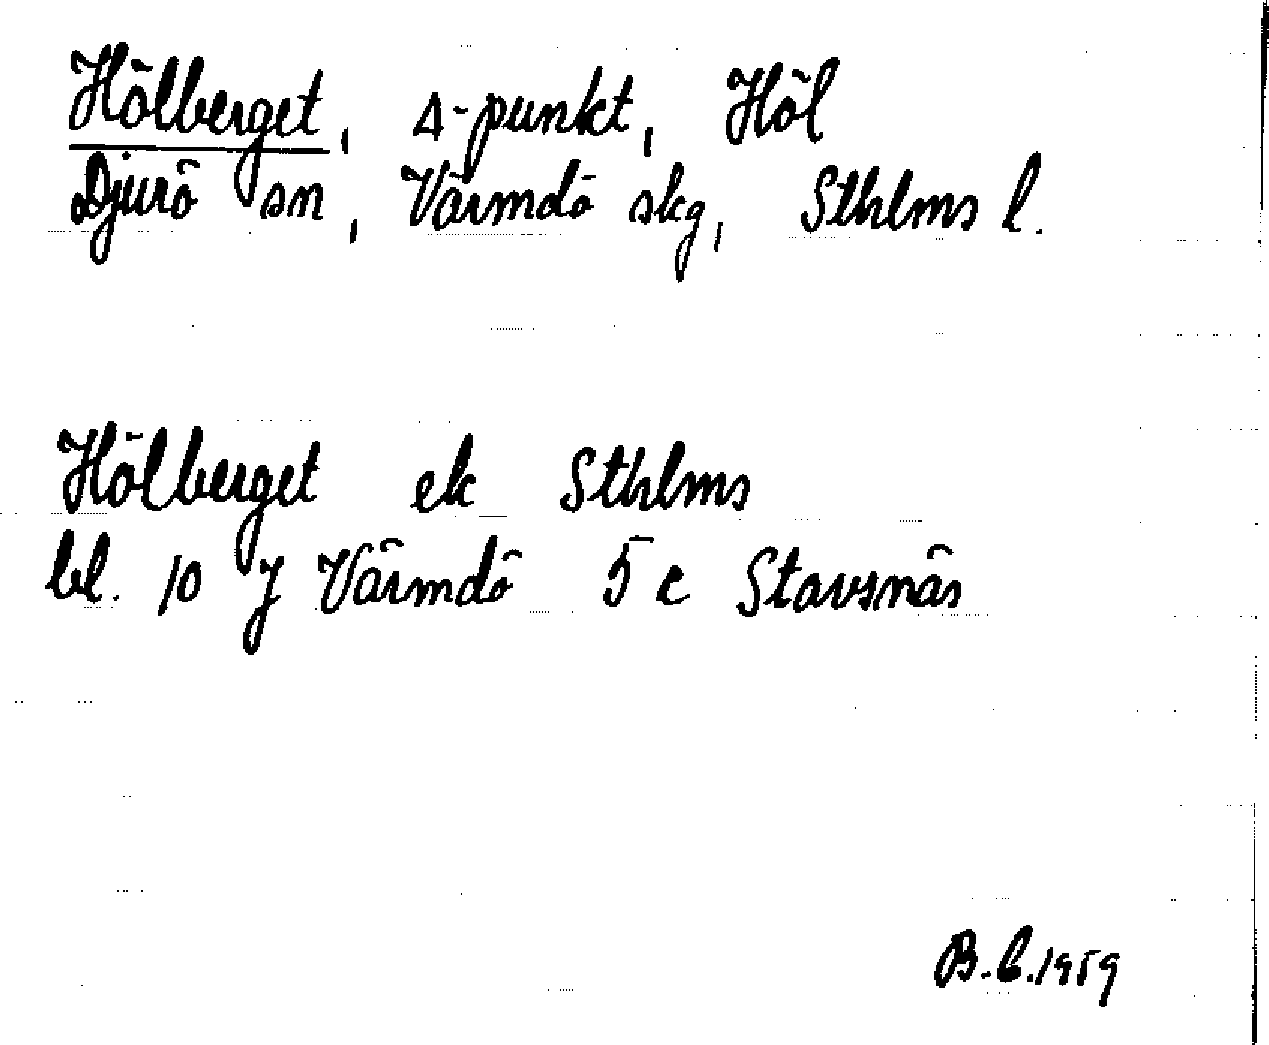 Hölberget, Δ-punkt, Höl
Djurö sn, Värmdö skg, Sthlms l.
Hölberget ek Sthlms
bl. 10 J Värmdö 5 c Stavsnäs
B.C.1959